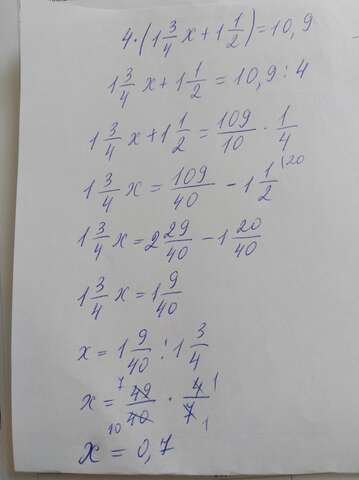 4·(1 3/4 x + 1 1/2) = 10,9
1 3/4 x + 1 1/2 = 10,9 : 4
1 3/4 x + 1 1/2 = 109/10 · 1/4
1 3/4 x = 109/40 − 1 1/2 (20
1 3/4 x = 2 29/40 − 1 20/40
1 3/4 x = 1 9/40
x = 1 9/40 : 1 3/4
x = 7 49/40 10 · 4/7 1 1
x = 0,7